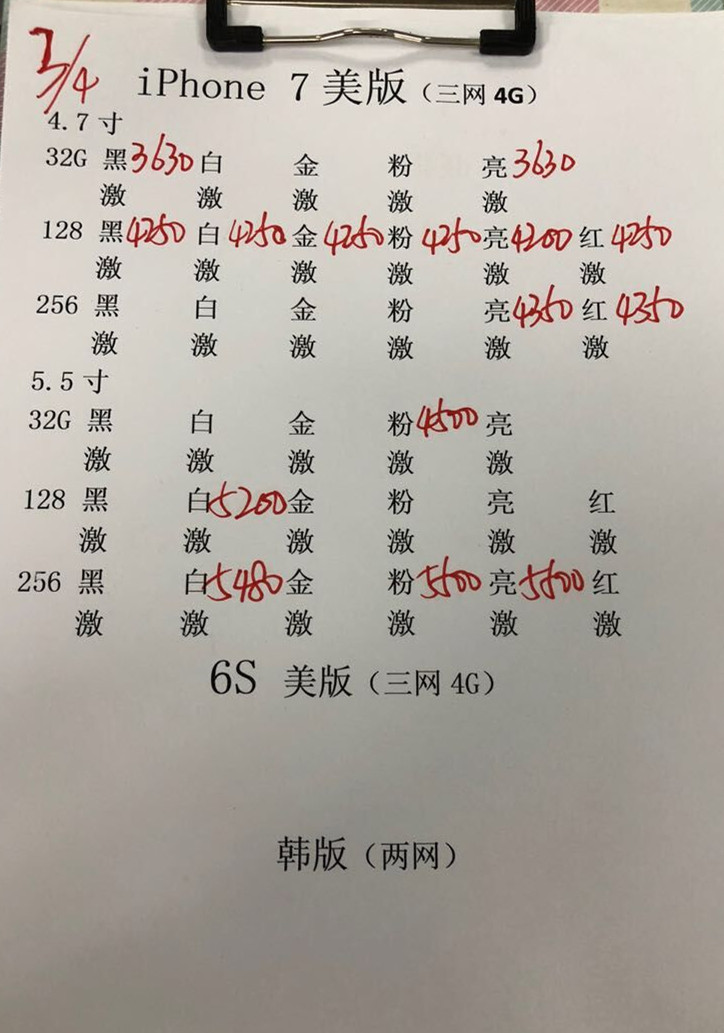 3/4
iPhone 7 美版（三网 4G）
4.7 寸
32G 黑 3630 白 金 粉 亮 3630
激 激 激 激 激
128 黑 4250 白 4250 金 4250 粉 4250 亮 4200 红 4250
激 激 激 激 激 激
256 黑 白 金 粉 亮 4350 红 4350
激 激 激 激 激 激
5.5 寸
32G 黑 白 金 粉 4500 亮
激 激 激 激 激
128 黑 白 5200 金 粉 亮 红
激 激 激 激 激 激
256 黑 白 5480 金 粉 5500 亮 5500 红
激 激 激 激 激 激
6S 美版（三网 4G）
韩版（两网）